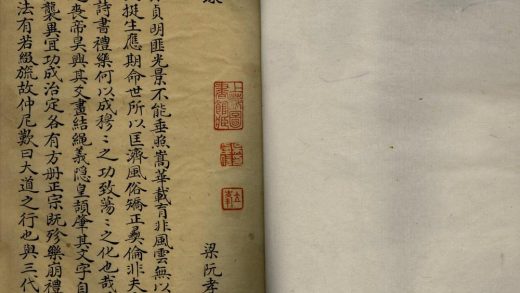 上海圖書館藏
梁阮孝
貞明匪光景不能垂照嵩華載育非風雲無以
挺生應期命世所以匡濟風俗矯正彝倫非夫
詩書禮樂何以成穆〻之功致蕩〻之化也哉
喪帝昊興其爻畫結繩義隱皇頡肇其文字自
襲異宜功成治定各有方冊正宗既殄樂崩禮
法有若綴旒故仲尼歎曰大道之行也與三代